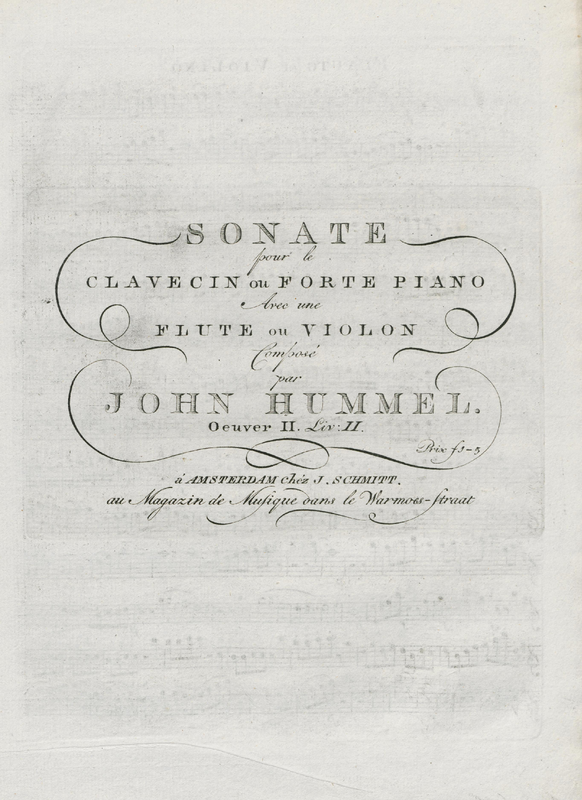 SONATE
pour le
CLAVECIN ou FORTE PIANO
Avec une
FLUTE ou VIOLON
Composé
par
JOHN HUMMEL.
Oeuver II. Liv: II.
Prix f1-5
à AMSTERDAM Chéz J. SCHMITT.
au Magazin de Musique dans le Warmoes-straat